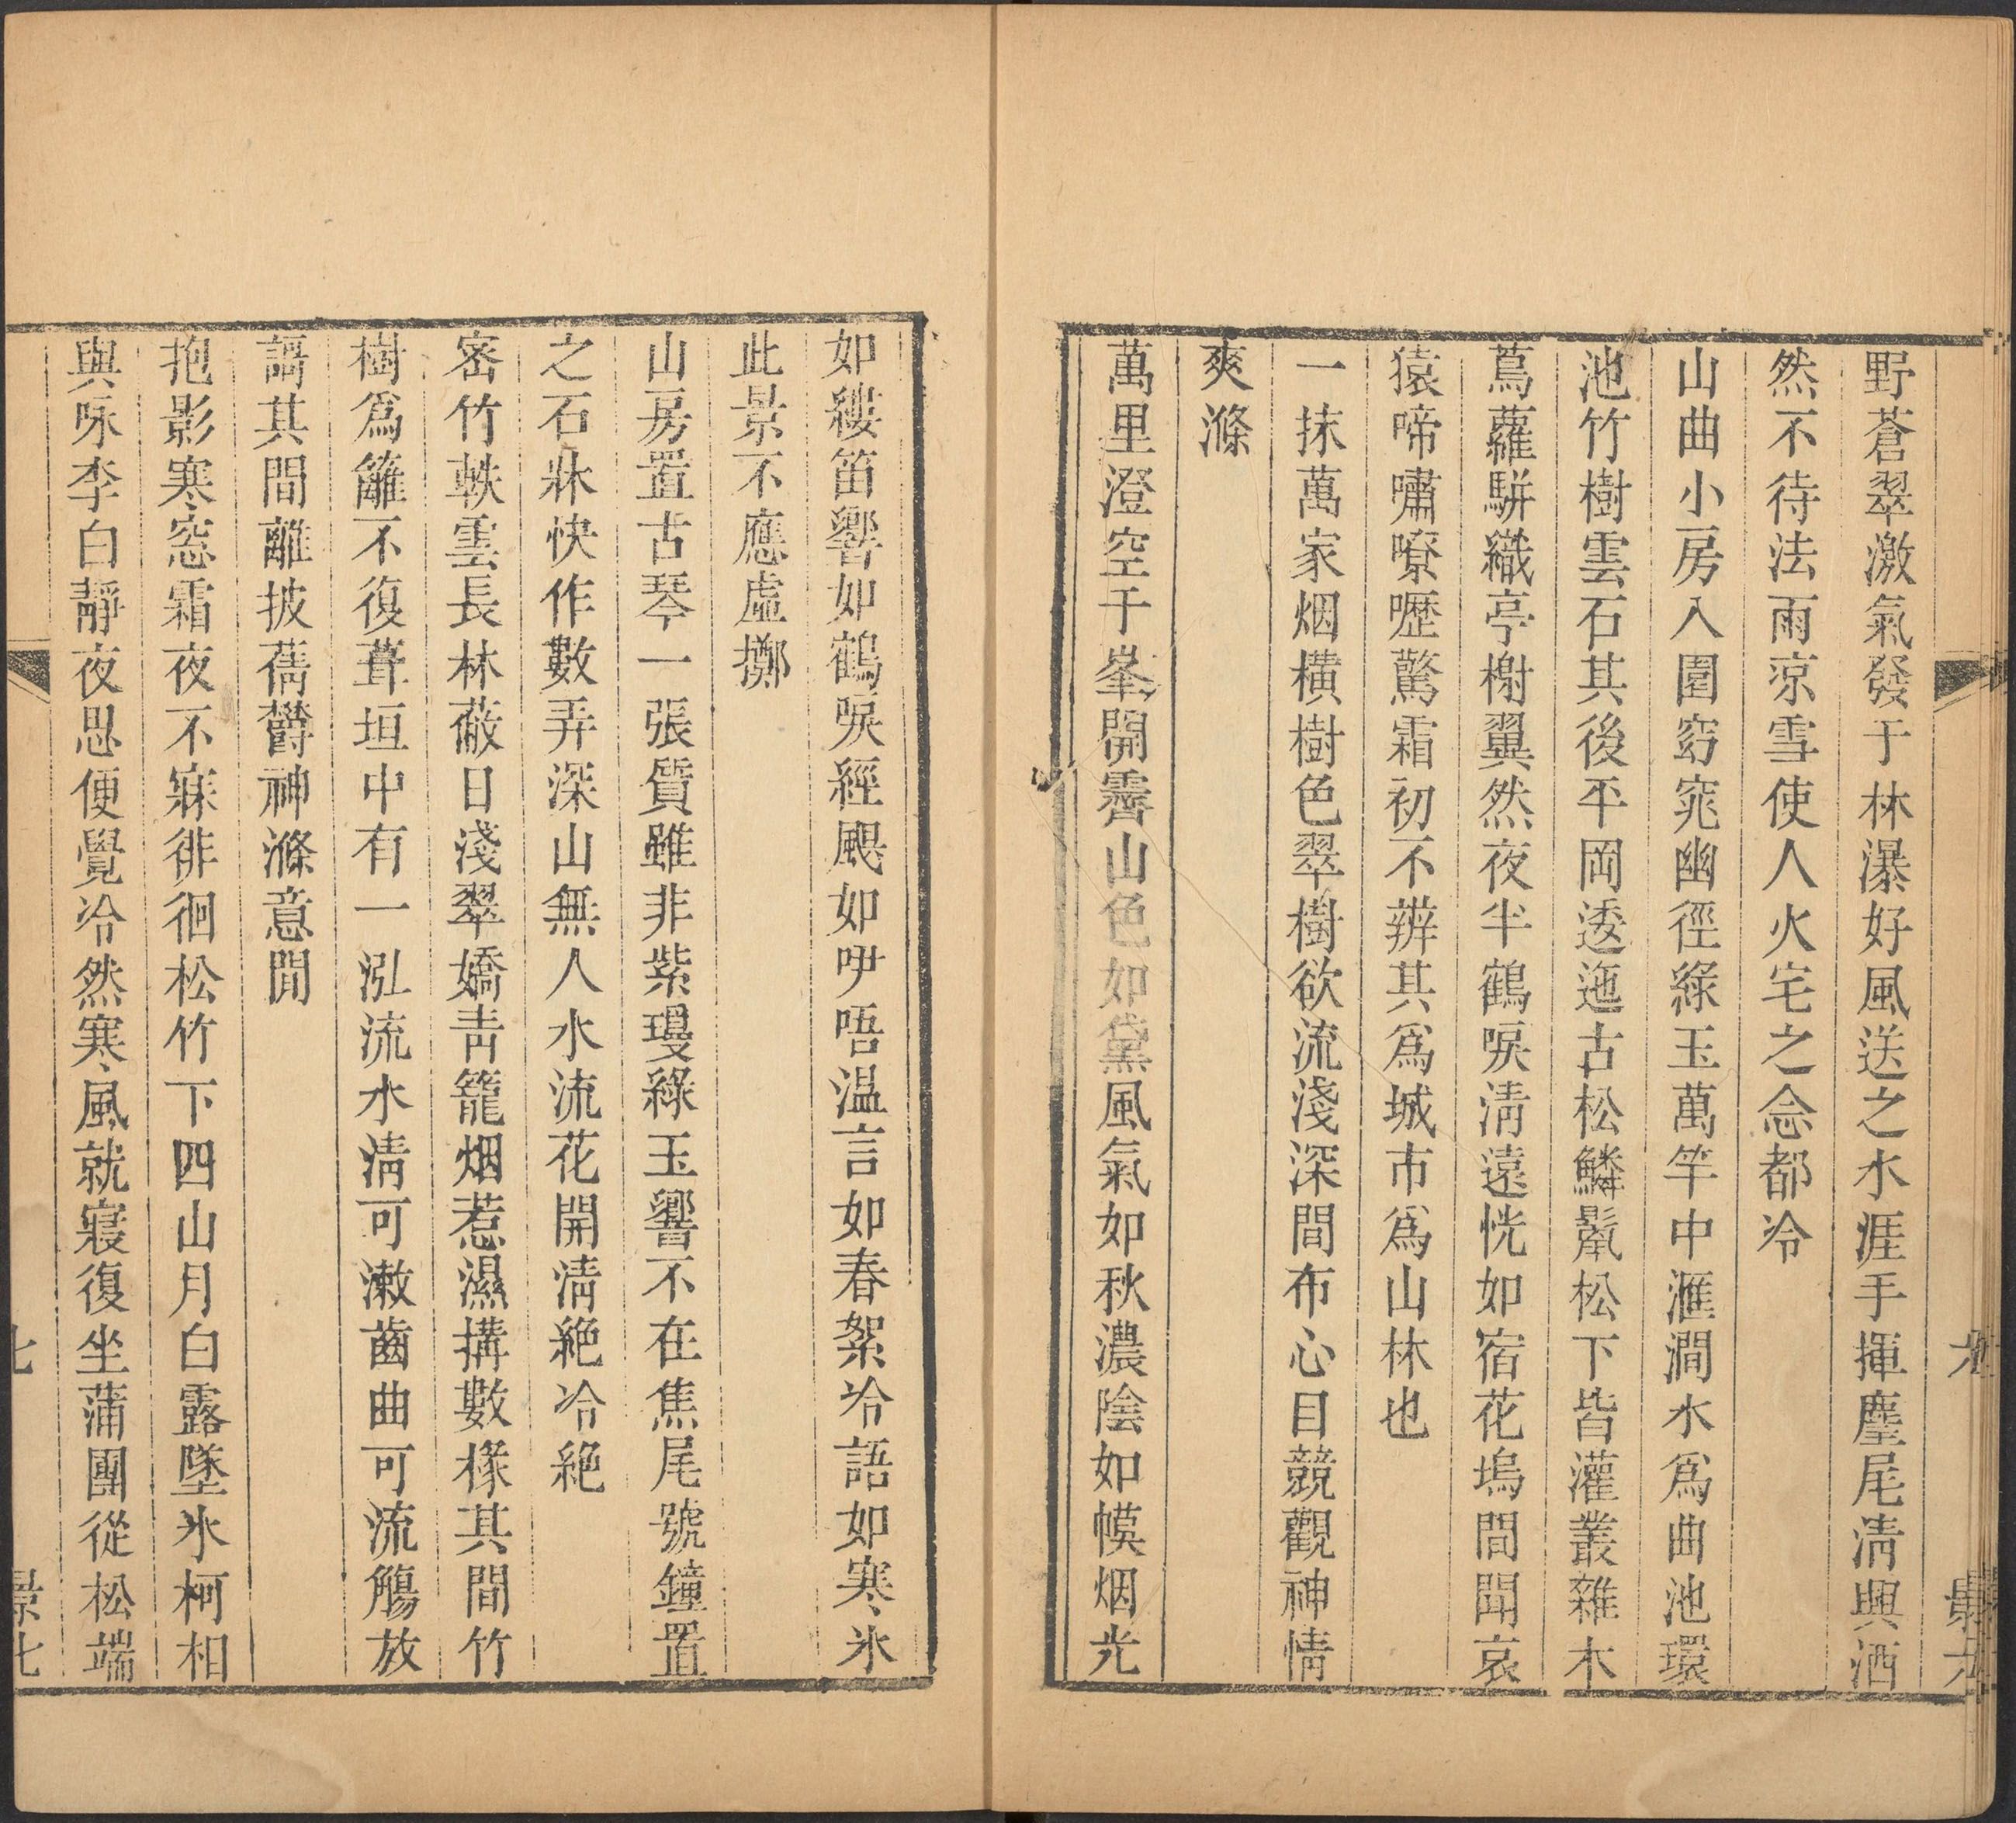 野蒼翠激氣發于林瀑好風送之水涯手揮麈尾清興洒
然不待法雨涼雪使人火宅之念都冷
山曲小房入園窈窕幽徑綠玉萬竿中滙澗水爲曲池環
池竹樹雲石其後平岡逶迤古松鱗鬣松下皆灌叢雜木
蔦蘿駢織亭榭翼然夜半鶴唳清遠恍如宿花塢間聞哀
猿啼嘯嘹嚦驚霜初不辨其爲城市爲山林也
一抹萬家烟橫樹色翠樹欲流淺深間布心目競觀神情
爽滌
萬里澄空千峯開霽山色如黛風氣如秋濃陰如幙烟光
如縷笛響如鶴唳經颶如咿唔温言如春絮冷語如寒氷
此景不應虛擲
山房置古琴一張質雖非紫瓊綠玉響不在焦尾號鐘置
之石牀快作數弄深山無人水流花開清絶冷絶
密竹軼雲長林蔽日淺翠嬌青籠烟惹濕搆數椽其間竹
樹爲籬不復葺垣中有一泓流水清可漱齒曲可流觴放
謌其間離披蒨欝神滌意閒
抱影寒窓霜夜不寐徘徊松竹下四山月白露墜氷柯相
與咏李白靜夜思便覺冷然寒風就寢復坐蒲團從松端
七
景七